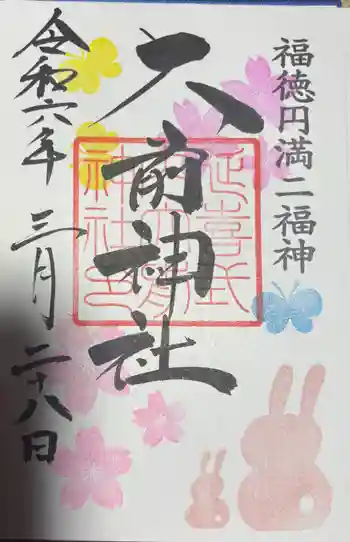 福徳円満二福神
大前神社
延喜式
神社
令和六年 三月 二十八日